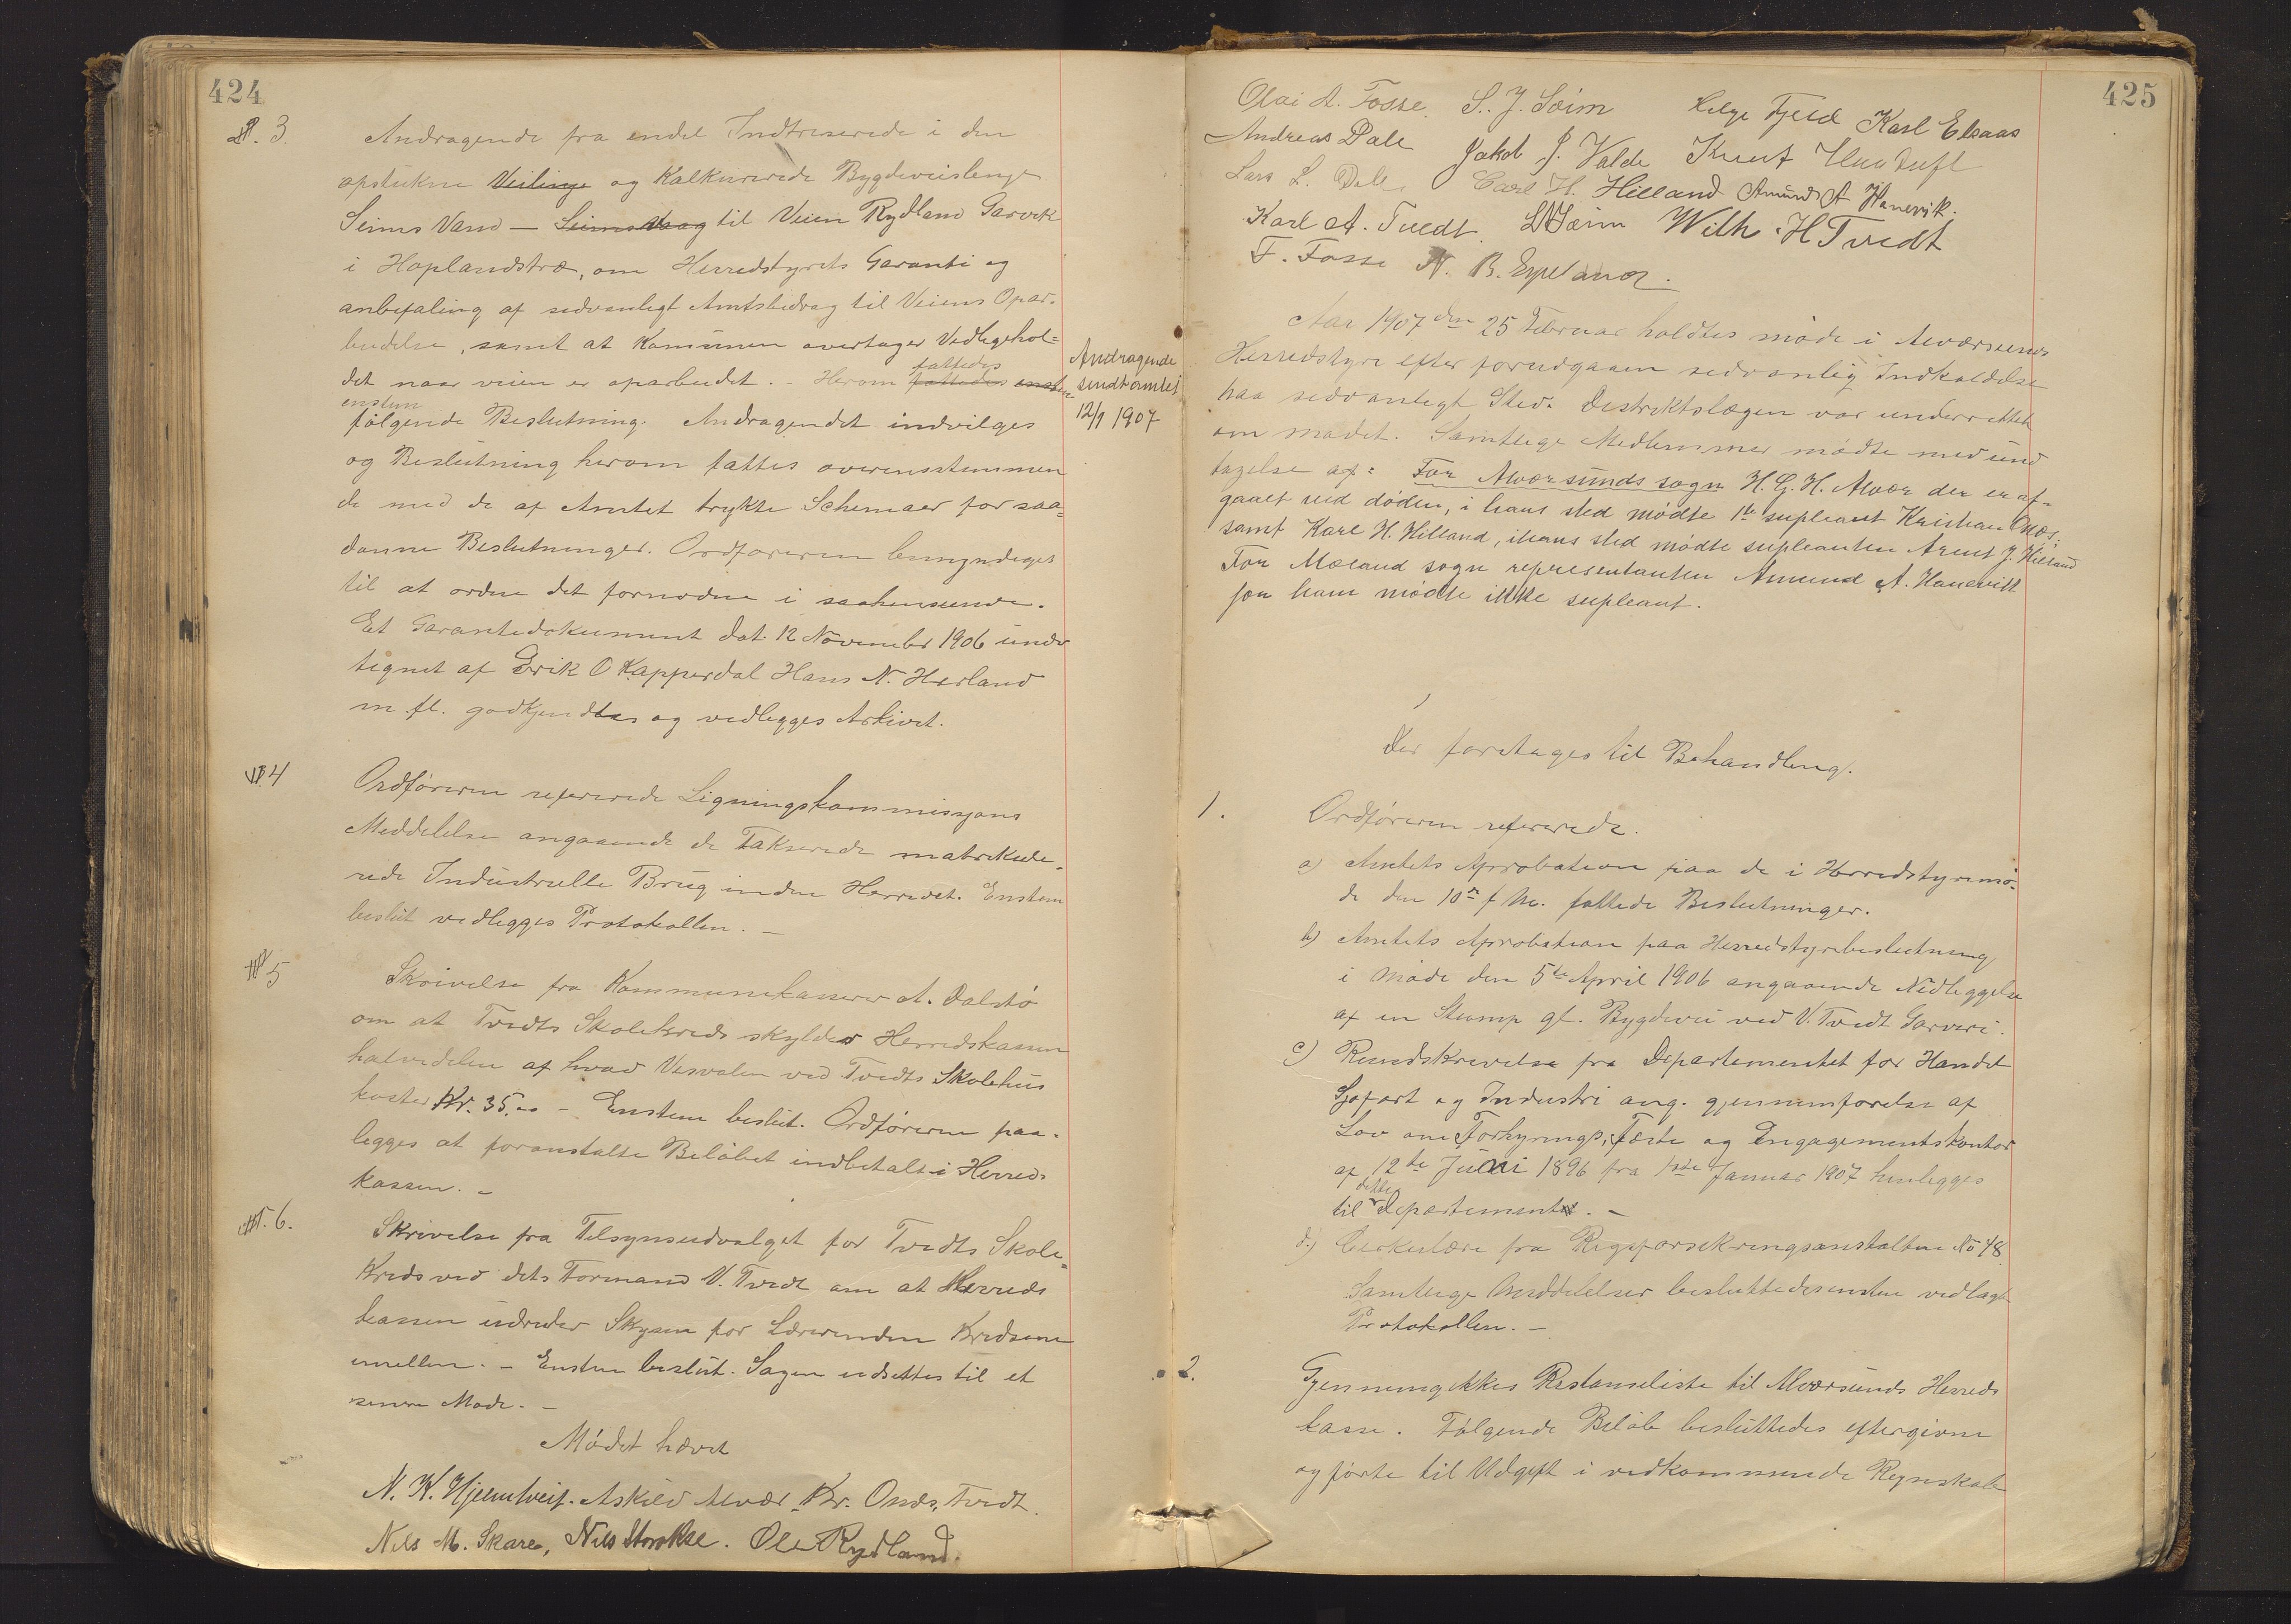 424
3.
Andragende fra endel Indtreserede i den
opstukne Veilinge og Kalkurerede Bygdeveislenge
Seims Vand — Seims Vaag til Veien Rydland Garvik
i Hoplandstræ, om Herredstyrets Garanti og
anbefaling af sedvanligt Amtsbidrag til Veiens Opar-
beidelse, samt at Kommunen overtager Vedligehol-
det naar veien er oparbeidet. - Herom fattedes fattedes enstem
enstem
følgende Beslutning. Andragendet indvilges
og Beslutning herom fattes overensstemmen
de med de af Amtet trykte Schemaer for saa-
danne Beslutninger. Ordføreren bemyndiges
til at ordne det fornødne i saahenseende.
Et Garantidokument dat. 12 November 1906 under
tegnet af Erik O Kapperdal Hans N. Herland
m. fl. godkjendtes og vedlegges Arkivet.
Andragende
sendt amtet
12/1 1907
4
Ordføreren refererede Ligningskommissjons
Meddelelse angaaende de Takserede matrikule-
rede Industrielle Brug inden Herredet. Enstem
beslut vedlegges Protokollen. —
5
Skrivelse fra Kommunekasserer A. Dalstø
om at Tvedts Skolekreds skylder Herredskassen
halvdelen af hvad Vasvalen ved Tvedts Skolehus
koster Kr. 35.00 - Enstem beslut. Ordføreren paa-
legges at foranstalte Beløbet indbetalt i Herreds
kassen. -
6.
Skrivelse fra Tilsynsudvalget for Tvedts Skole-
Kreds ved dets Formand V. Tvedt om at Herreds
kassen udreder Skysen for Lærerinden Kredsene
imellem. - Enstem beslut. Sagen udsettes til et
senere Møde. -
Mødet hævet
N. K. Hjelmtveit. Askild Alvær. Kr. Onæs, Tvedt.
Nils M. Skare, Nils Storokse. Ole Rydland.
425
Olai A. Fosse. S. J. Seim Helge Fjeld Karl Elsaas
Andreas Dale Jakob J. Valde Knut
Lars L. Dale, Carl H. Hilland Amund A Hanevik.
Karl A. Tvedt. Wilh. H Tvedt
F. Fosse N. B.
Aar 1907 den 25 Februar holdtes møde i Alværsunds
Herredstyre efter forudgaaen sedvanlig Indkaldelse
paa sedvanligt Sted. Distriktslægen var underrettet
om mødet. Samtlige Medlemmer mødte med und
tagelse af: For Alværsunds sogn H. G. H. Alvær der er af-
gaaet ved døden, i hans sted mødte 1te supleant Kristian Onæs.
samt Karl H. Hilland, i hans sted mødte supleanten Arent J. Hilland
For Mæland sogn representanten Amund A. Hanevik
for ham mødte ikke supleant.
Der foretages til Behandling.
1.
Ordføreren refererede.
a) Amtets Aprobation paa de i Herredstyremø-
de den 10de f M. fattede Beslutninger.
b) Amtets Aprobation paa Herredstyrebeslutning
i møde den 5te April 1906 angaaende Nedleggelse
af en Stump gl. Bygdevei ved V. Tvedt Garveri.
c) Rundskrivelse fra Departementet for Handel
Sjøfart og Industri ang. gjennemførelse af
Lov om Forhyrings, Fæste og Engagementskontor
af 12te Juni 1896 fra 1ste Januar 1907 henlegges
til dette Departement. -
d.) Cirkulære fra Rigsforsikringsanstalten No 48
Samtlige Meddelelser besluttedes enstem vedlagt
Protokollen. —
2.
Gjennemgikkes Restanseliste til Alværsunds Herreds
kasse. Følgende Beløb besluttedes eftergivne
og førte til Udgift i vedkommende Regnskab